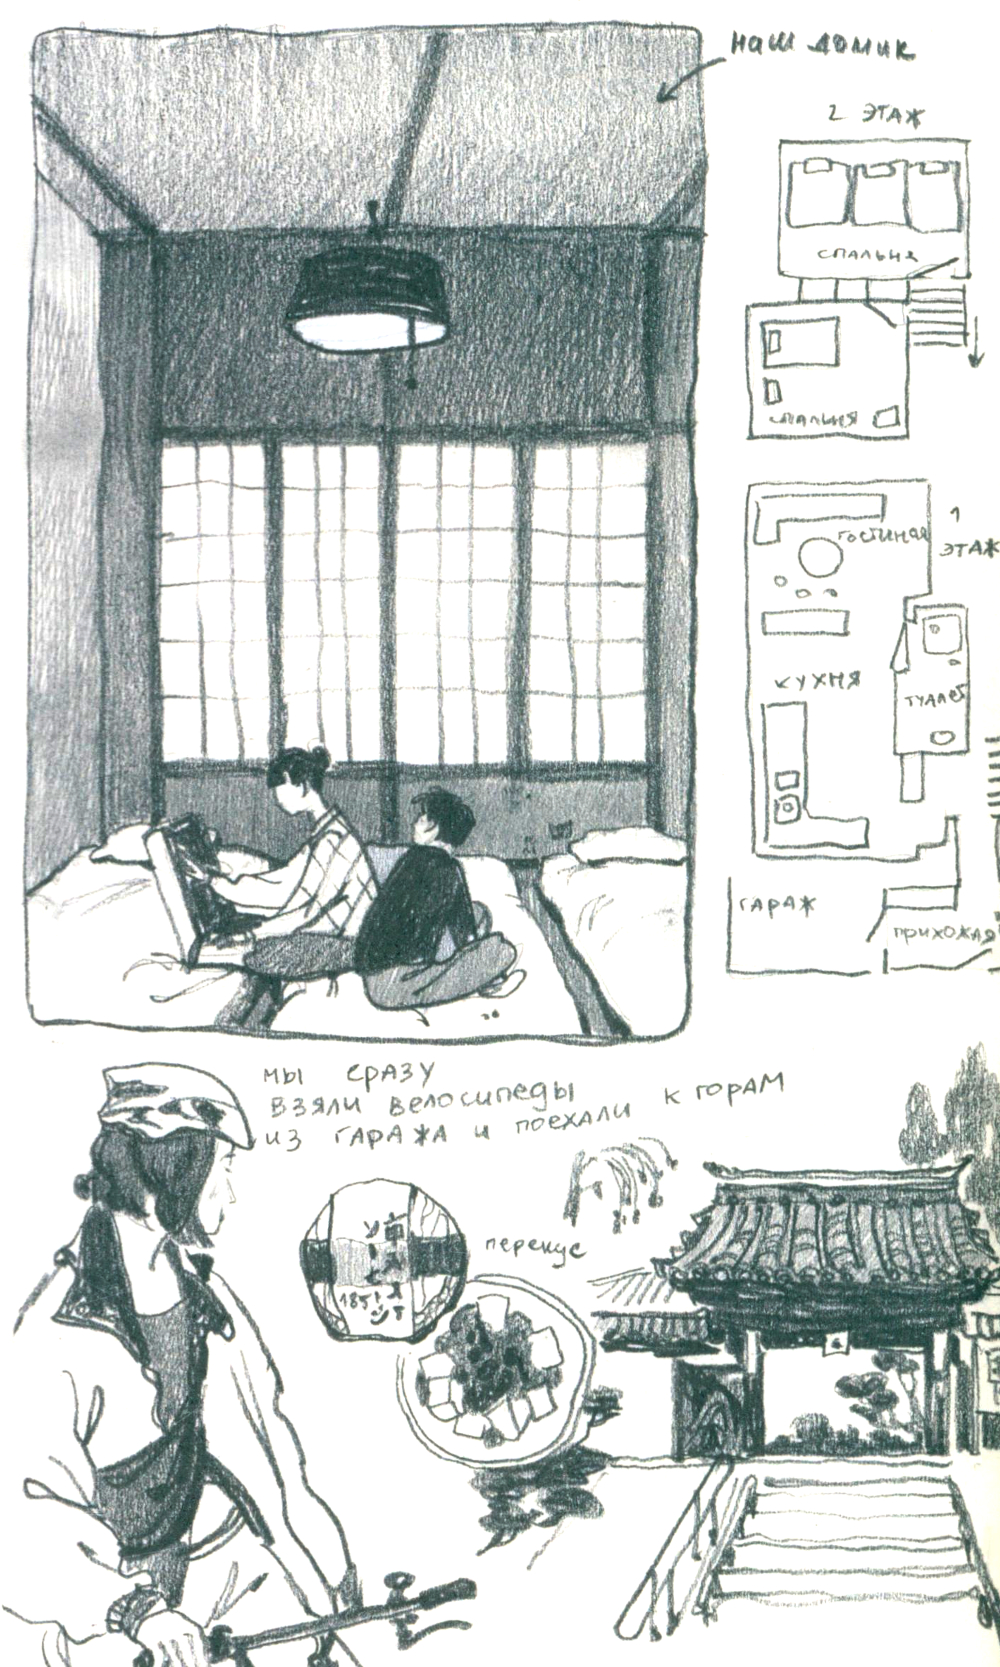 наш домик
2 этаж
спальня
спальня
1
этаж
гостиная
кухня
туалет
гараж
прихожая
мы сразу
взяли велосипеды
из гаража и поехали к горам
перекус
185